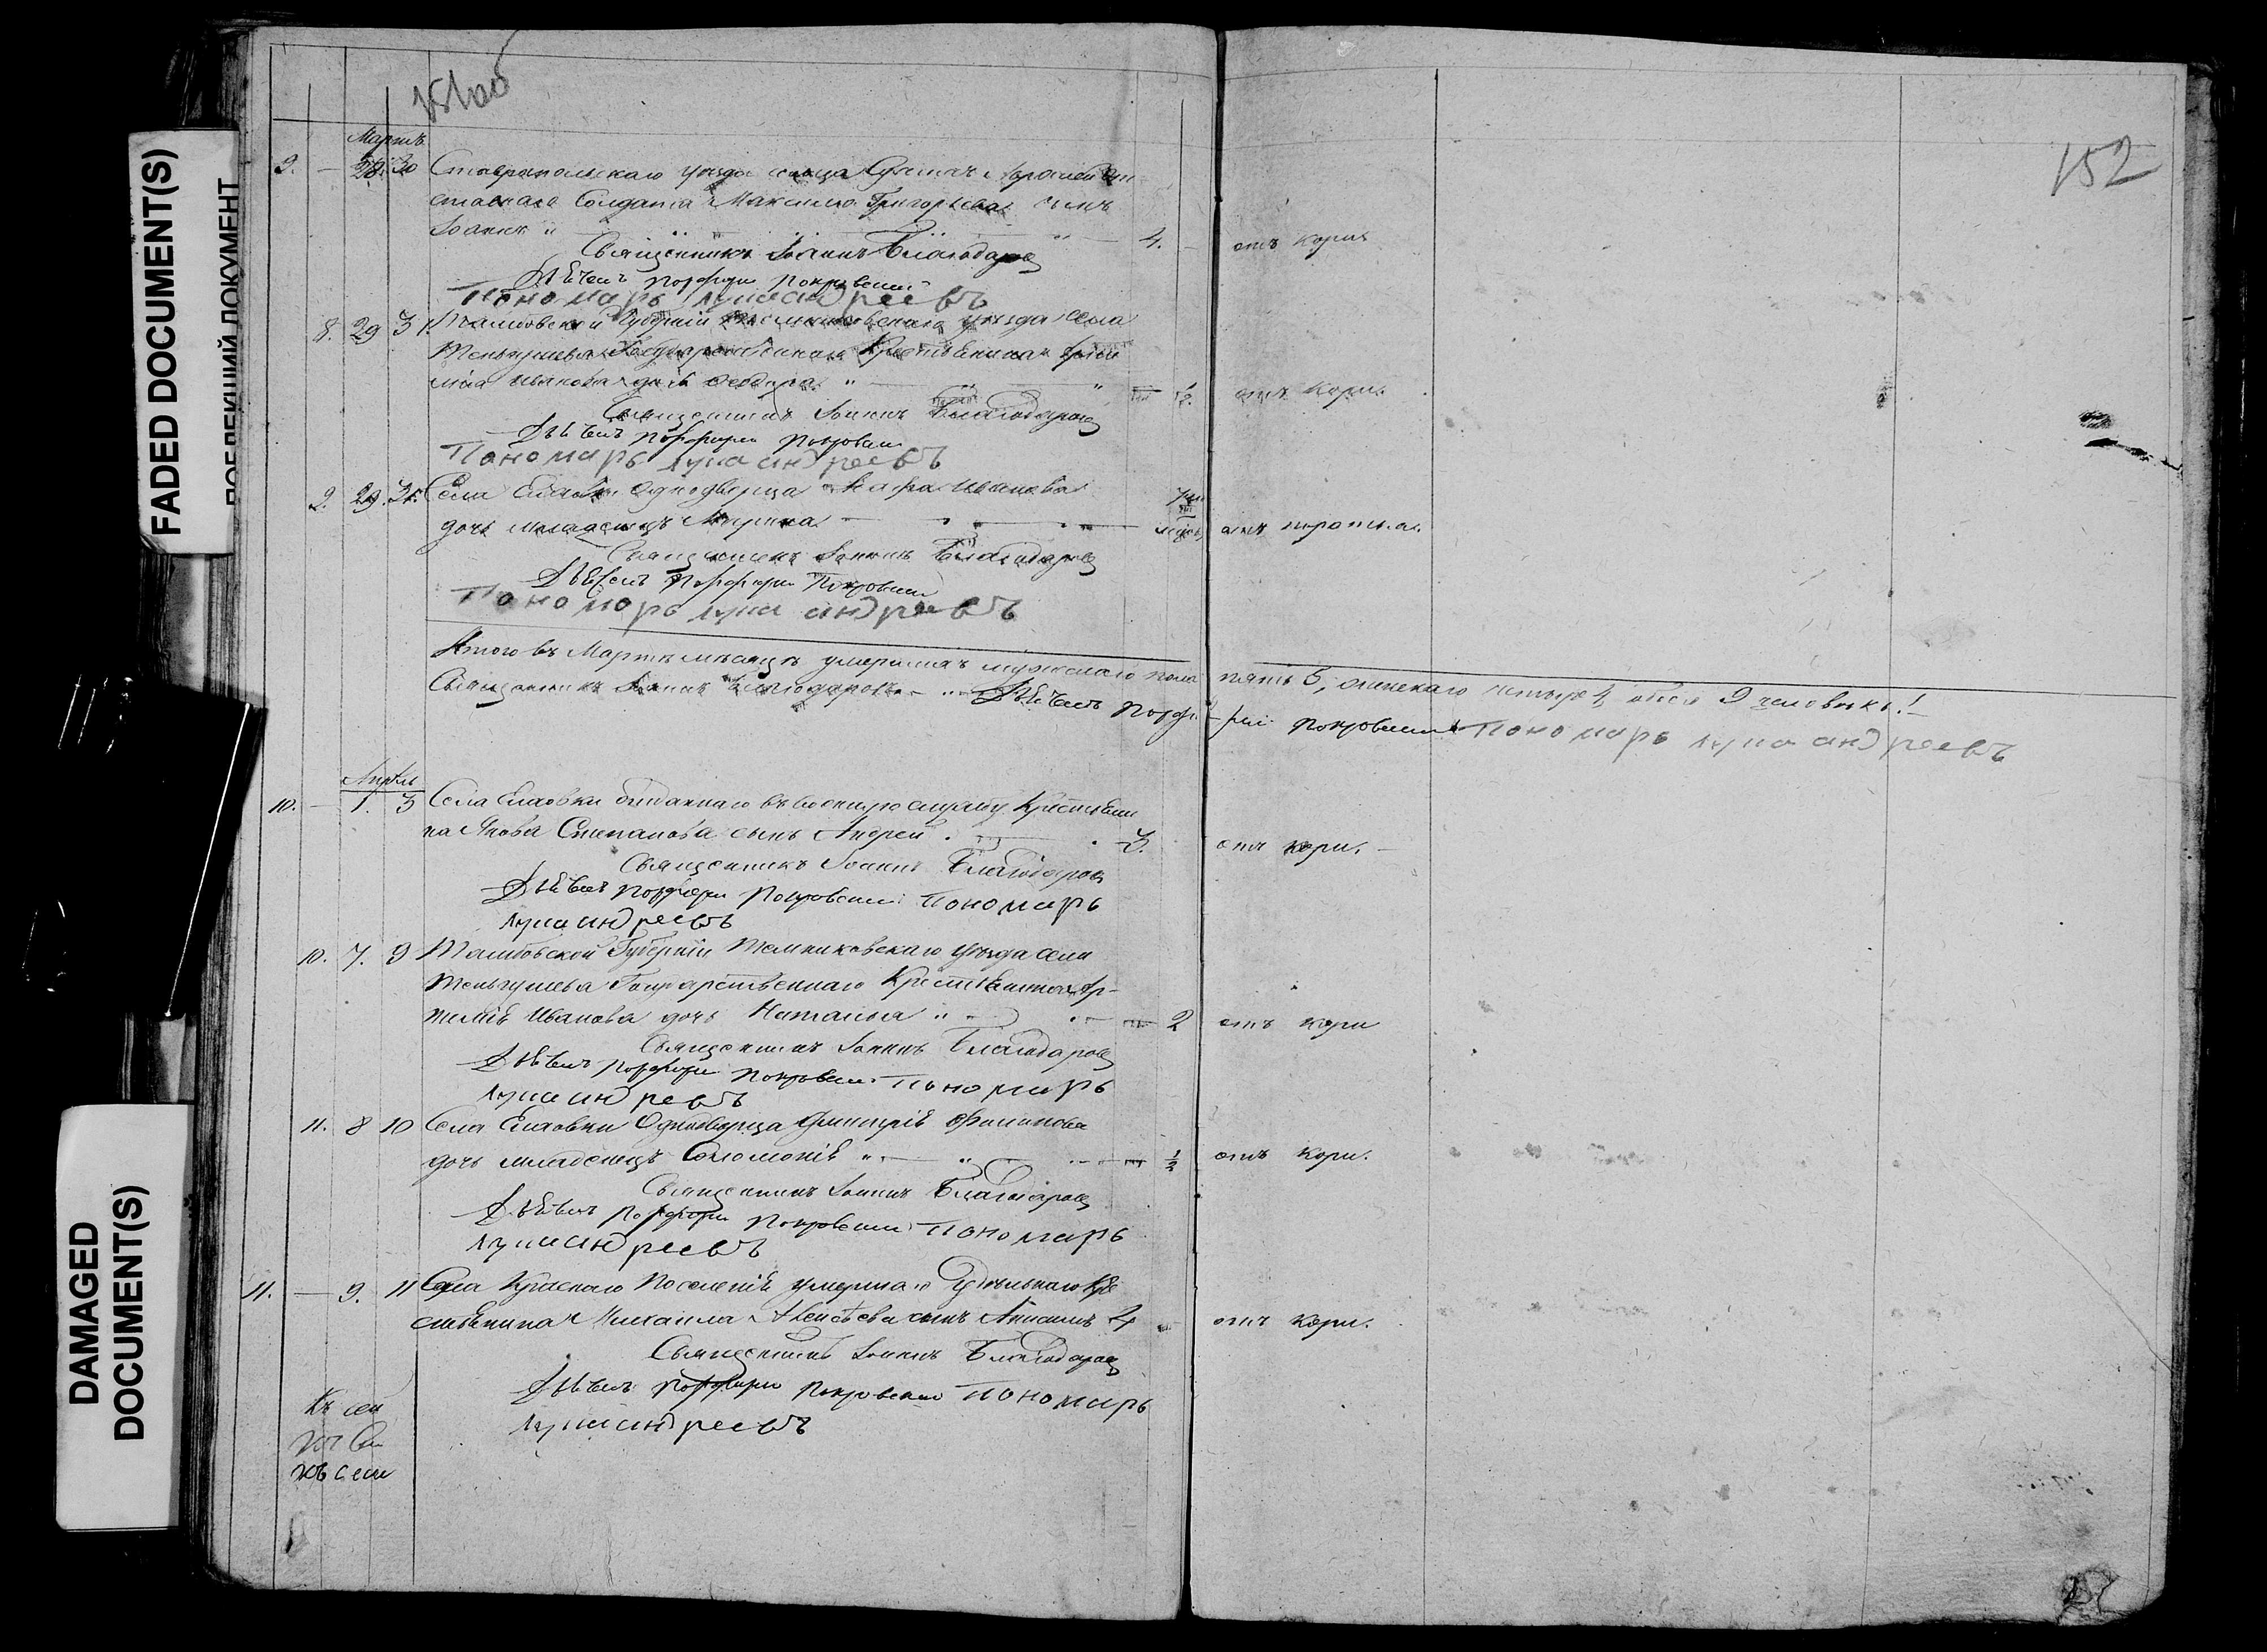 FADED DOCUMENT(S)
DAMAGED DOCUMENT(S)
152
Мартъ
9. — 28. 30 Ставропольскаго уѣзда сельца
Солдата Максима Григорьева сынъ
Іоаннъ 4. отъ кори
Священникъ Іоаннъ Благодаровъ
Дьячекъ Порфирій Покровскій
Пономарь Лука Андреевъ
8. 29 31. Тамбовской Губерніи Темниковскаго уѣзда села
Теньгушева Государственнаго Крестьянина Арте
мія Иванова дочь Ѳеодора отъ кори.
Священникъ Іоаннъ Благодаровъ
Дьячекъ Порфирій Покровскій
Пономарь Лука Андреевъ
9. 29. 31. Села Еловки Однодворца Иванова
дочь младенецъ Марина отъ
Священникъ Іоаннъ Благодаровъ
Дьячекъ Порфирій Покровскій
Пономарь Лука Андреевъ
Итого въ Мартѣ мѣсяцѣ умершихъ мужескаго пола пять 5, женскаго четыре 4 обоего 9 человѣкъ!
Священникъ Іоаннъ Благодаровъ Дьячекъ Порфи-рій Покровскій Пономарь Лука Андреевъ
Апрѣль
10. — 1. 3 Села Еловки отданнаго въ военную службу Крестьяни
на Якова Степанова сынъ Андрей 3. отъ кори.
Священникъ Іоаннъ Благодаровъ
Дьячекъ Порфирій Покровскій Пономарь
Лука Андреевъ
10. 7. 9 Тамбовской Губерніи Темниковскаго уѣзда села
Теньгушева Государственнаго Крестьянина Ар-
темія Иванова дочь Наталья 2 отъ кори
Священникъ Іоаннъ Благодаровъ
Дьячекъ Порфирій Покровскій Пономарь
Лука Андреевъ
11. 8 10 Села Еловки Однодворца Димитрія Филипова
дочь младенецъ Соломонія ½ отъ кори.
Священникъ Іоаннъ Благодаровъ
Дьячекъ Порфирій Покровскій Пономарь
Лука Андреевъ
11. — 9. 11 Села Краснаго Поселенія умершаго Удѣльнаго Кре
стьянина Михаила Алексѣева сынъ 4 отъ кори.
Священникъ Іоаннъ Благодаровъ
Дьячекъ Порфирій Покровскій Пономарь
Лука Андреевъ
Къ сей
къ сей